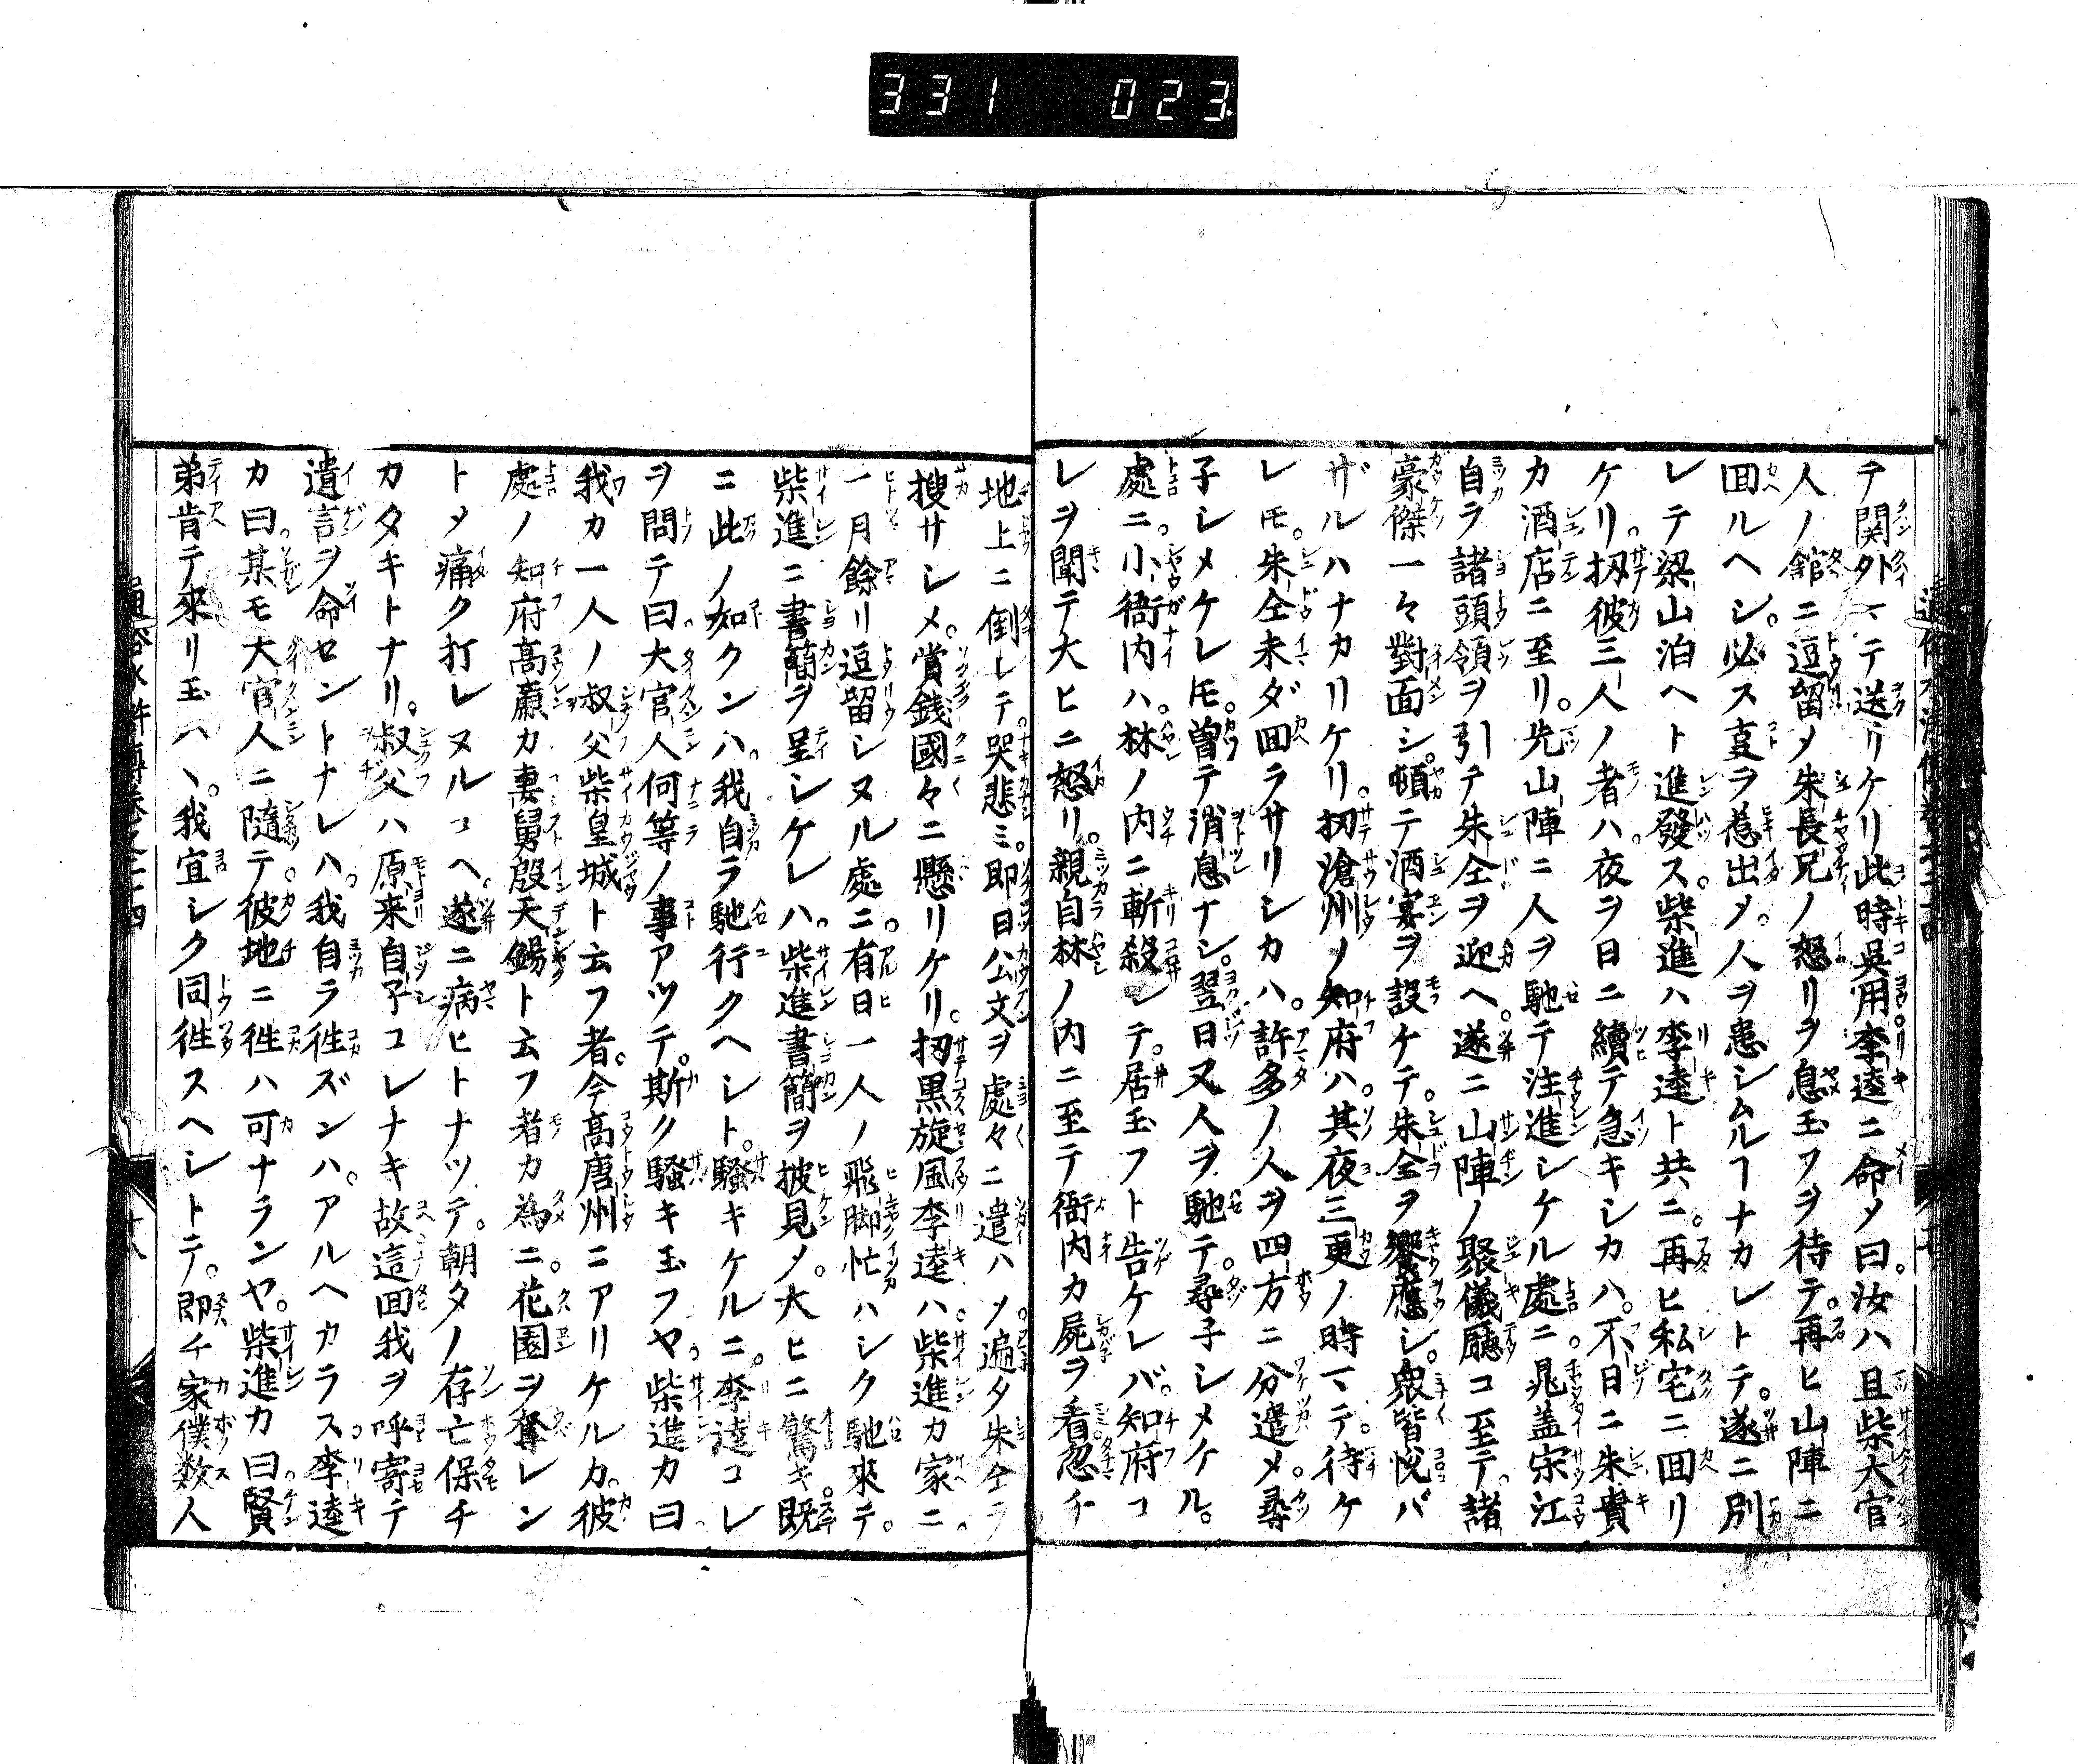 331 023
テ関外マテ送リケリ此時呉用李逵ニ命メ曰。汝ハ且柴大官
人ノ舘ニ逗留メ朱長兄ノ怒リヲ息玉フヲ待テ。再ヒ山陣ニ
囬ルヘシ。必ス𠮷ヲ惹出メ。人ヲ患シムルヿナカレトテ。遂ニ別
レテ梁山泊ヘト進發ス。柴進ハ李逵ト共ニ。再ヒ私宅ニ囬リ
ケリ。扨彼三人ノ者ハ。夜ヲ日ニ續テ急キシカハ。不日ニ朱貴
カ酒店ニ至リ。先山陣ニ人ヲ馳テ注進シケル處ニ。晁盖宋江
自ラ諸頭領ヲ引テ朱仝ヲ迎ヘ。遂ニ山陣ノ聚儀廳コ至テ。諸
豪傑一々對面シ。頓テ酒宴ヲ設ケテ。朱仝ヲ饗應シ。衆皆悦バ
ザルハナカリケリ。扨滄州ノ知府ハ。其夜三更ノ時マテ。待ケ
レ𪜈。朱仝未ダ囬ラサリシカハ。許多ノ人ヲ四方ニ分遣メ。尋
子シメケレ𪜈。曽テ消息ナシ。翌日又人ヲ馳テ。尋子シメケル。
處ニ。小衙内ハ。林ノ内ニ斬殺レテ。居玉フト告ケレバ。知府コ
レヲ聞テ大ヒニ怒リ。親自林ノ内ニ至テ衙内カ屍ヲ看。忽チ
地上ニ倒レテ。哭悲ミ。即日公文ヲ處々ニ遣ハメ。遍タ朱仝ヲ
搜サシメ。賞銭國々ニ懸リケリ。扨黒旋風李逵ハ。柴進カ家ニ。
一月餘リ逗留シヌル處ニ。有日一人ノ飛脚忙ハシク馳來テ。
柴進ニ書簡ヲ呈シケレハ。柴進書簡ヲ披見メ。大ヒニ驚キ。既
ニ此ノ如クンハ。我自ラ馳行クヘシト。騒キケルニ。李逵コレ
ヲ問テ曰。大官人何等ノ事アツテ。斯ク騒キ玉フヤ。柴進カ曰
我カ一人ノ叔父柴皇城ト云フ者。今高唐州ニアリケルカ。彼
處ノ知府髙廉カ妻舅殷天錫ト云フ者カ為ニ。花園ヲ奪レン
トメ痛ク打レヌルユヘ。遂ニ病ヒトナツテ。朝夕ノ存亡保チ
カタキトナリ。叔父ハ原来自子コレナキ故這囬我ヲ呼寄テ
遺言ヲ命セントナレハ。我自ラ徃ズンハ。アルヘカラス。李逵
カ曰。某モ大官人ニ隨テ。彼地ニ徃ハ可ナランヤ。柴進カ曰賢
弟肯テ來リ玉ハヽ。我宜シク同徃スヘシトテ。即チ家僕数人
十八